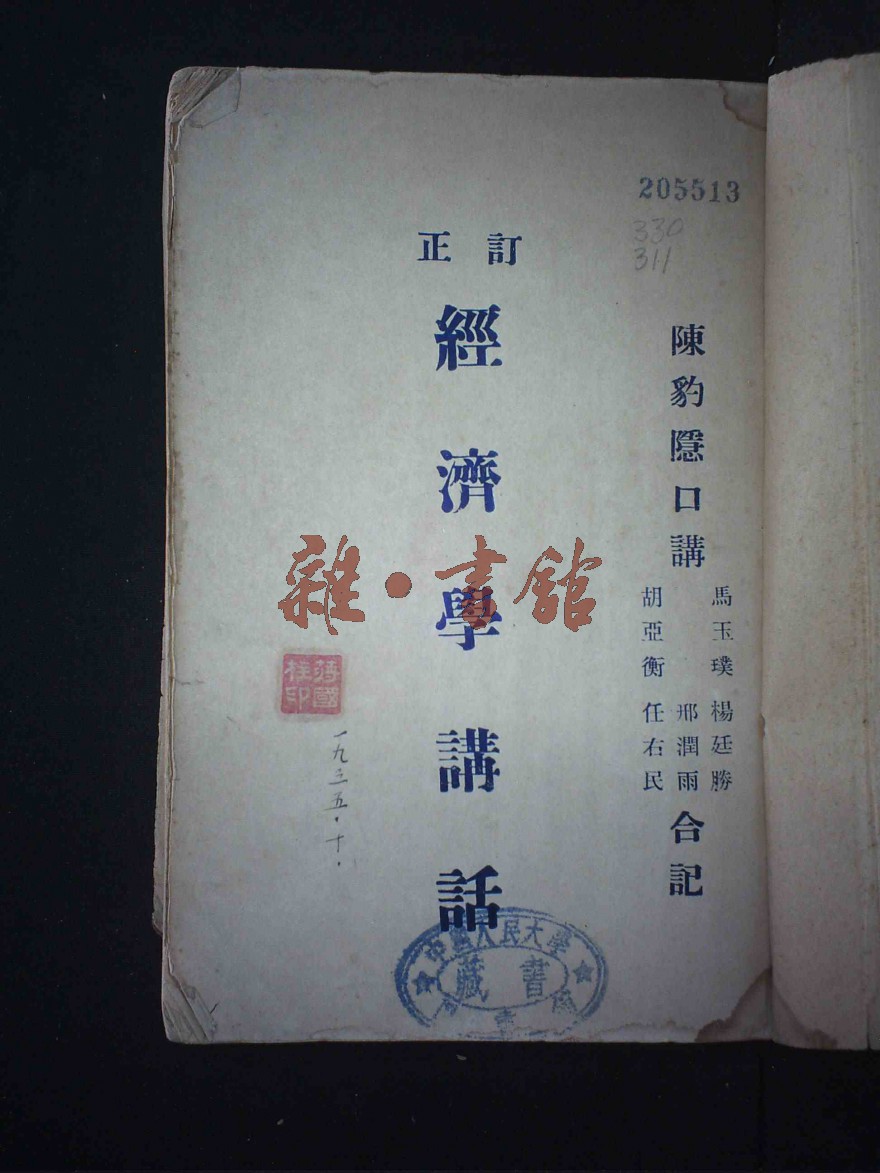 205513
330
311
陳豹隱口講
馬玉璞 楊廷勝
邢潤雨
胡亞衡 任右民
合記
訂正
經濟學講話
雜·書館
蔣國柱印
一九三五·十·
中國人民大學
藏書